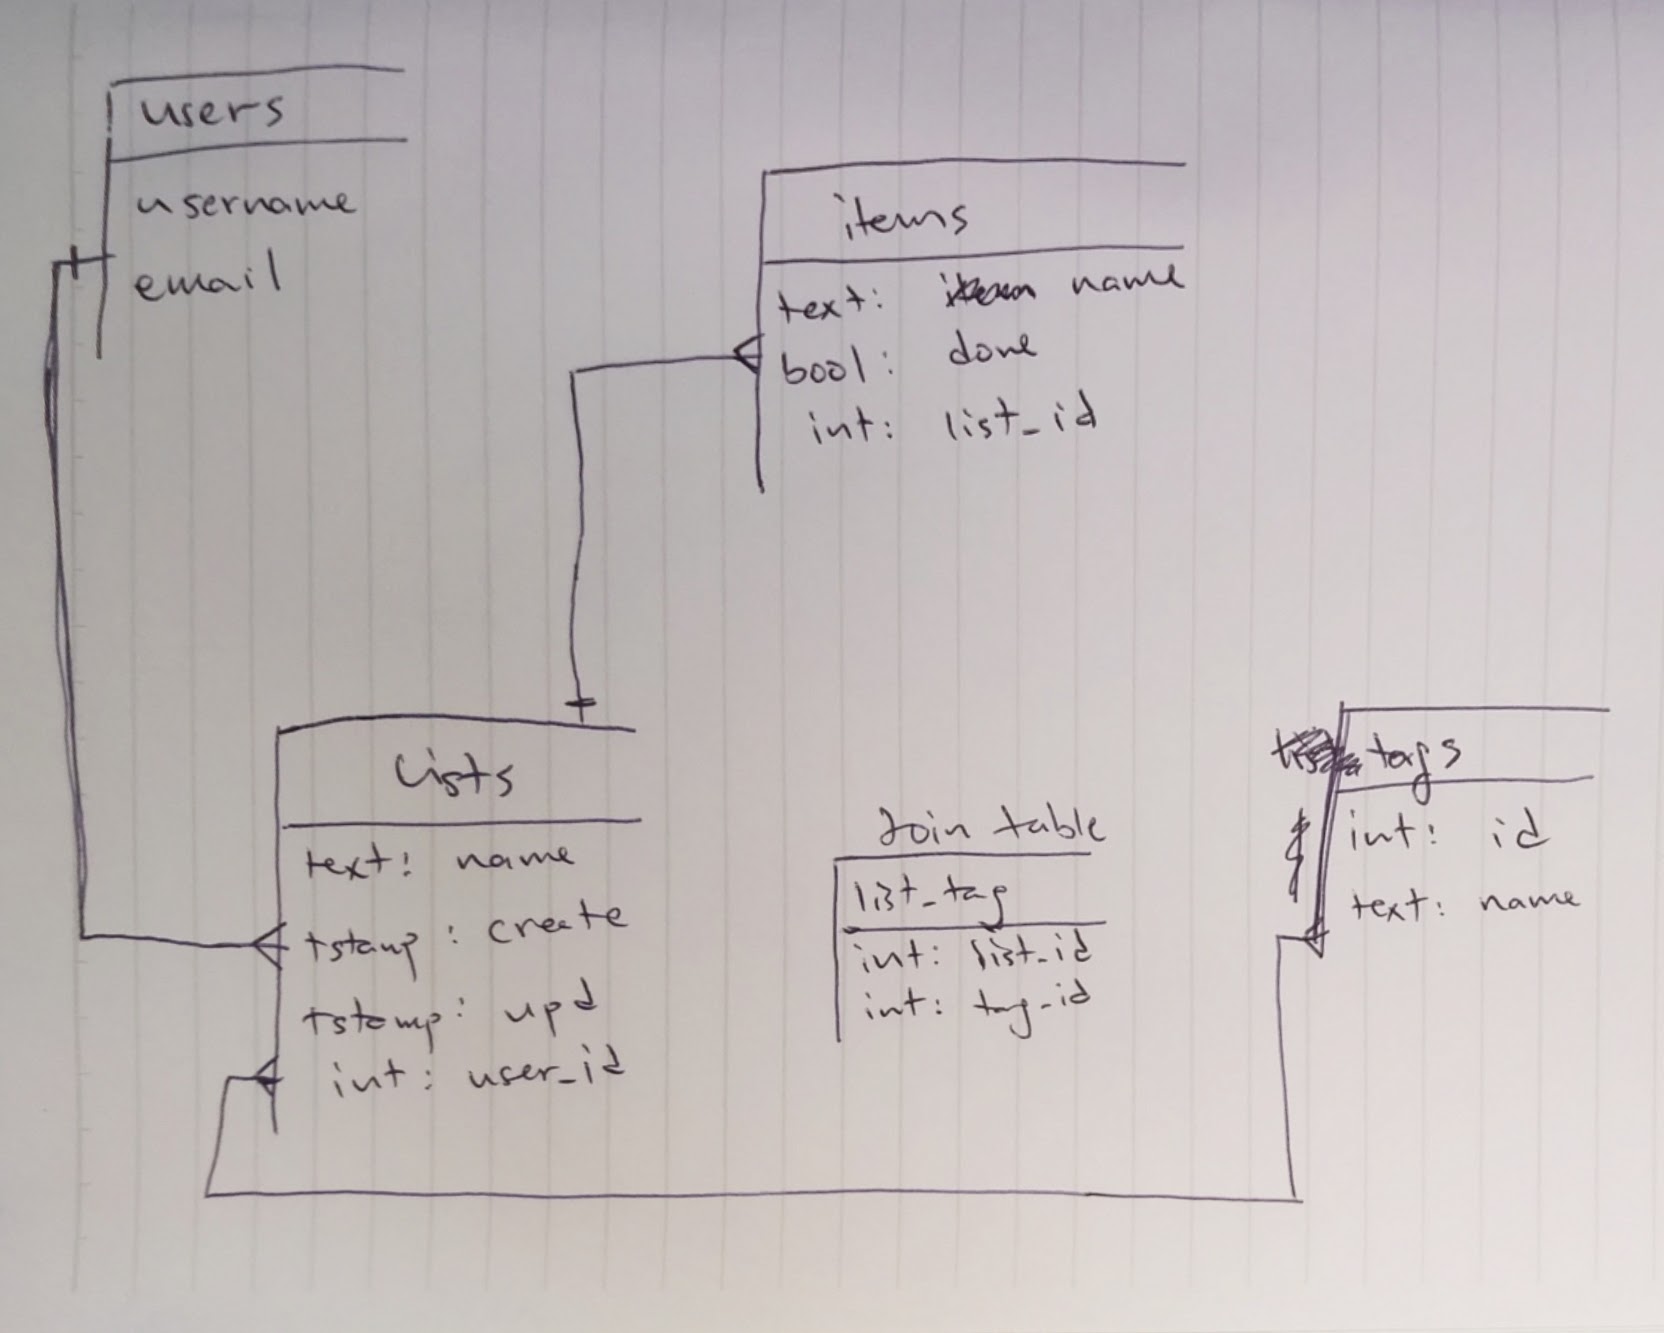 users
username
email
items
text: name
bool: done
int: list_id
Lists
text: name
tstamp: create
tstamp: upd
int: user_id
Join table
list_tag
int: list_id
int: tag_id
tags
int: id
text: name